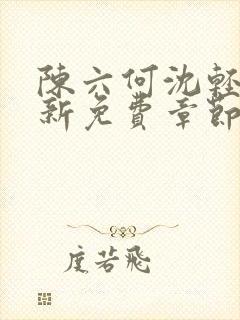 陳六何沈輕
新免費章節
度若飛